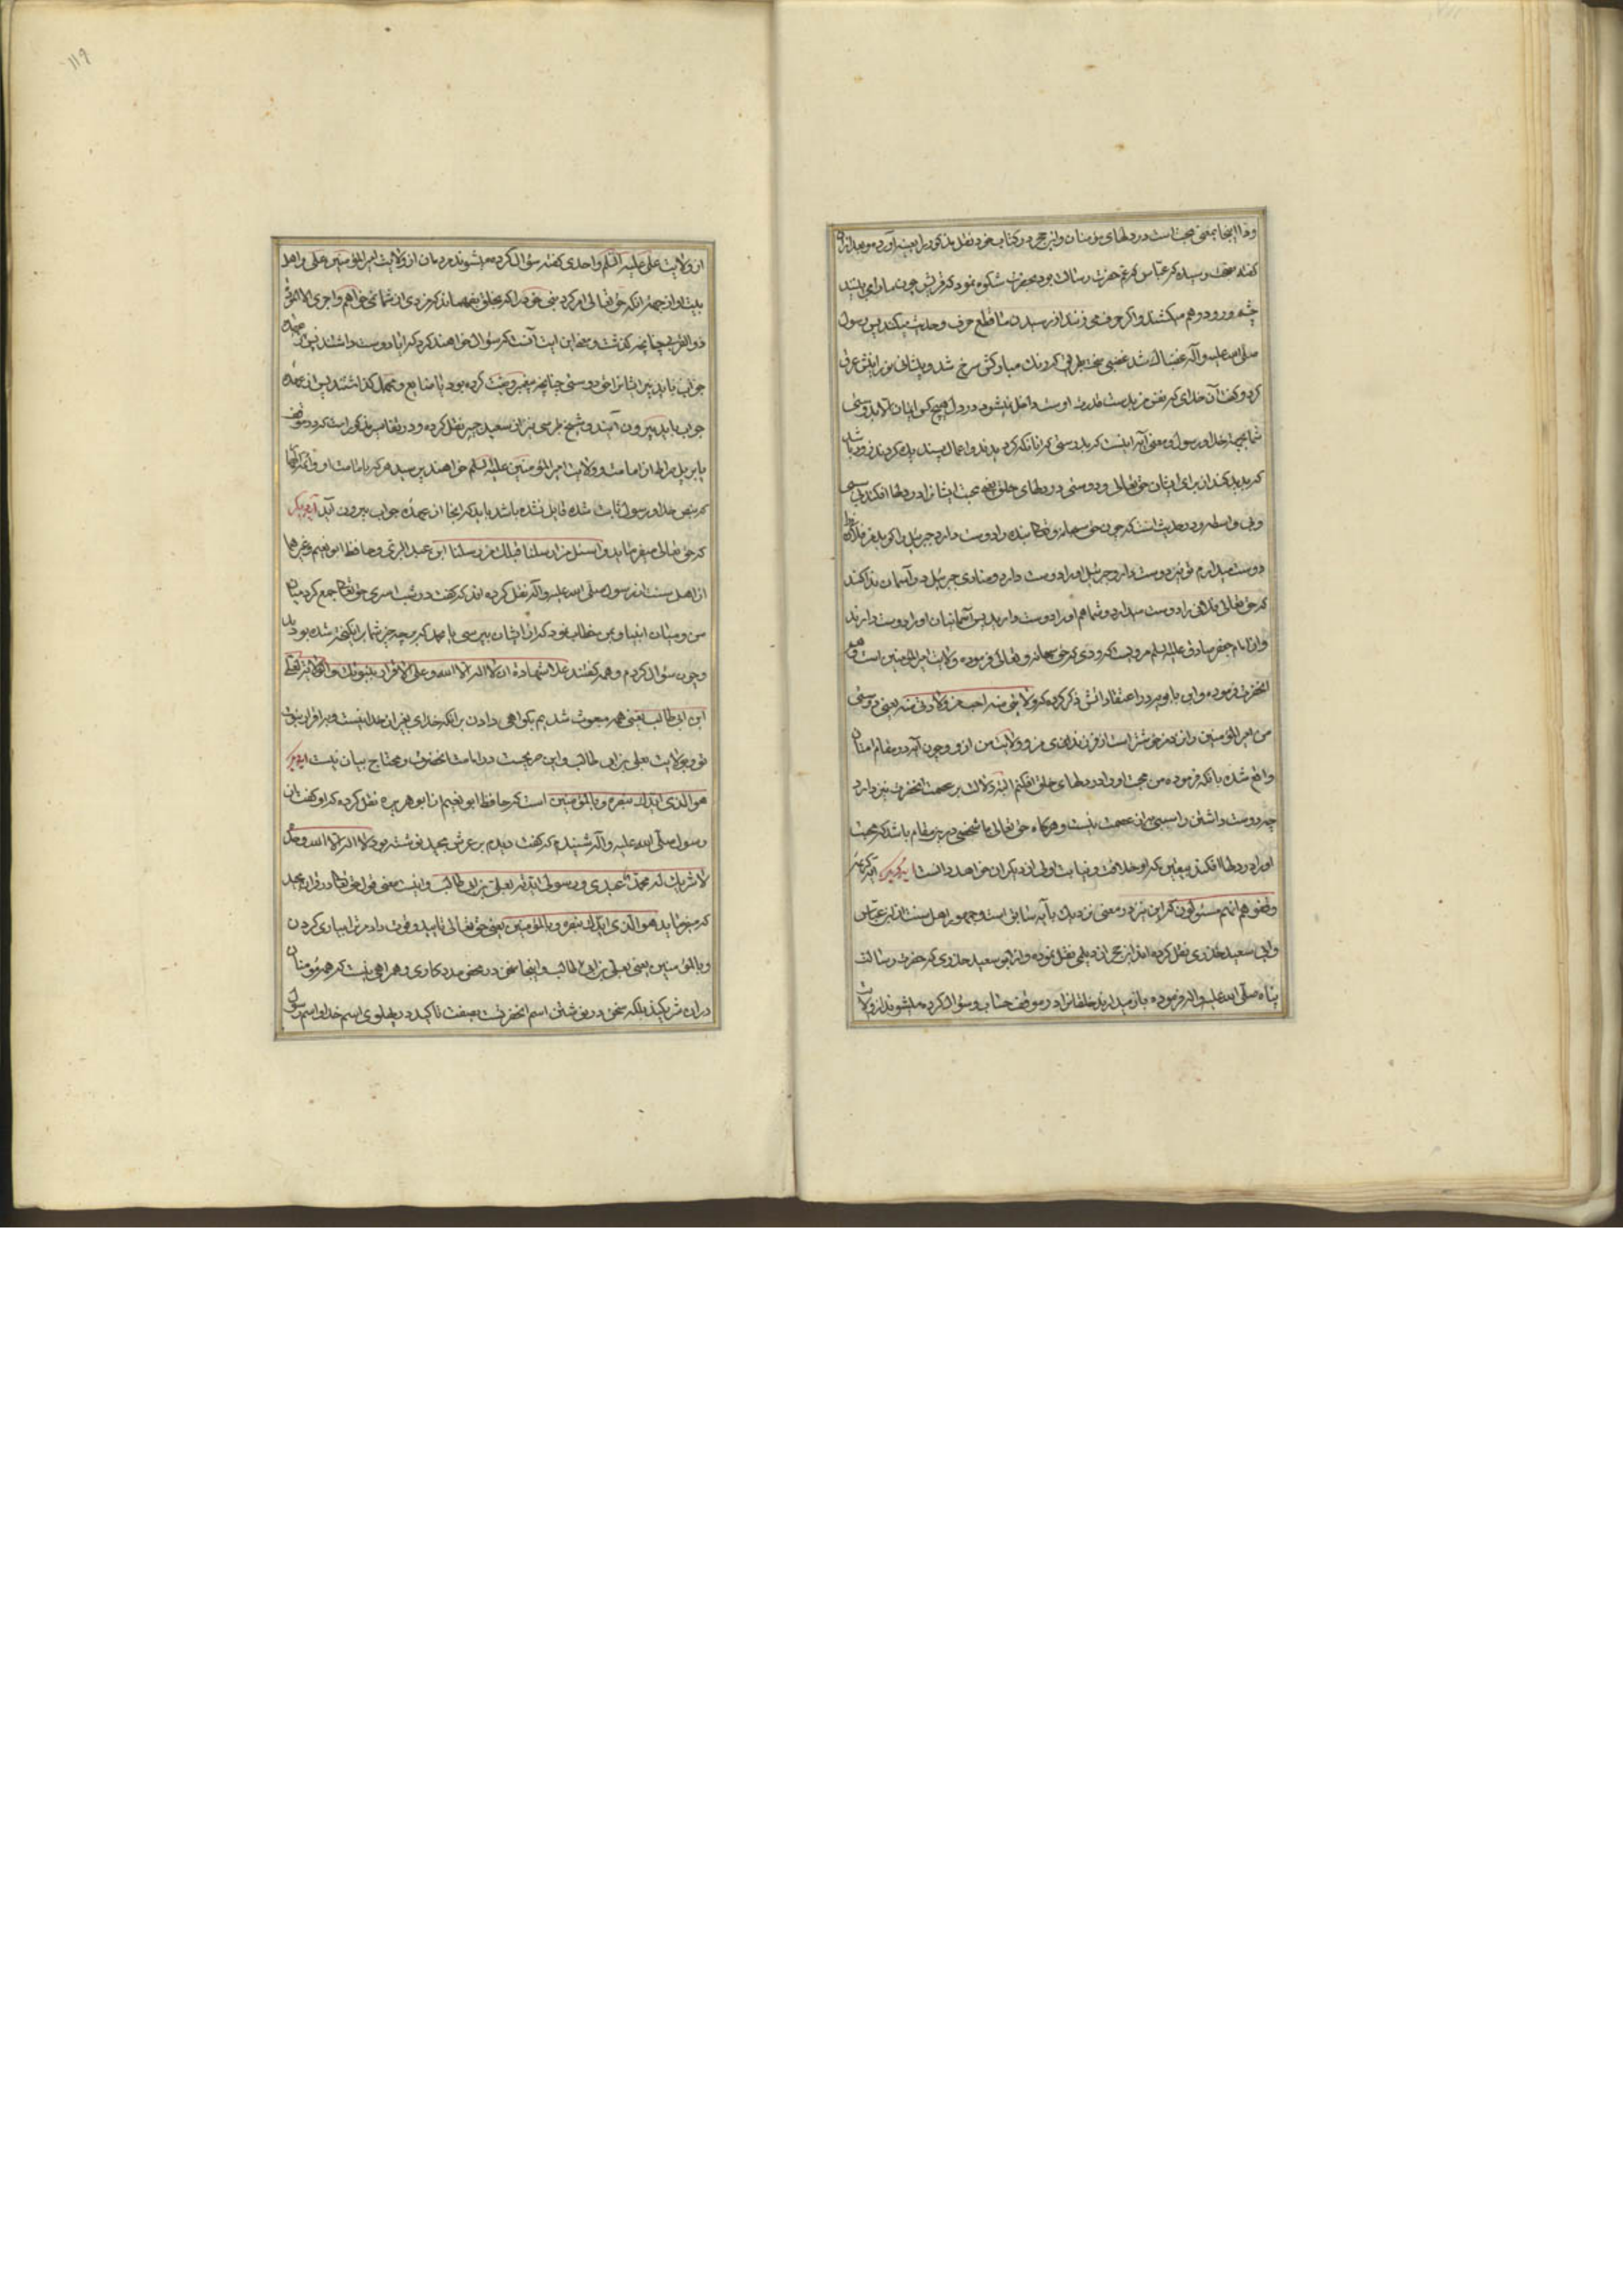 ودّا اینجا بمعنی محبت است در دلهای مؤمنان و ابن حجر در کتاب خود نقل مذکور را بعینه آورده و بعد از آن
گفته بصحت رسیده که عباس که عم حضرت رسالت بود بحضرت شکوه نمود که قریش چون ما را می بینند
چشم و رو درهم میکشند و اگر حرف می زنند از رسیدن ما قطع حرف و حدیث میکنند پس رسول
صلی الله علیه و آله غضبناک شد غضبی سخت بطریقی که رنگ مبارکش سرخ شد و پیشانی نورانیش عرق
کرد و گفت آن خدای که نفس من بدست قدرت اوست داخل نمیشود در دل هیچ کس ایمان تا بدوستی
شما بجهة خدا و رسول و معنی آیه اینست که بدرستی که آنانکه گرویدند و اعمال پسندیده کردند زود باشد
که پدید کند از برای ایشان حق تعالی ود و دوستی در دلهای خلق یعنی محبت ایشانرا در دلها افکند بی سببی
و بی واسطه و در حدیث است که چون حق سبحانه و تعالی بنده را دوست دارد جبرئیل را گوید من فلان را
دوست میدارم تو نیز دوست دار و جبرئیل او را دوست دارد و منادی جبرئیل در آسمان ندا کند
که حق تعالی فلانی را دوست میدارد و شما هم او را دوست دارید پس آسمانیان او را دوست دارند
و از امام جعفر صادق علیه السلم مرویست که ودی که حق سبحانه و تعالی فرموده ولایت امیر المؤمنین است و
آنحضرت فرموده و ابن بابویه در اعتقاداتش ذکر کرده که ولایتی منه احب من ولادتی منه یعنی دوستی
من امیر المؤمنین را نزد من خوشتر است از فرزندی من و ولایت من ازو و چون آیه در مقام امتنان
واقع شده بآنکه فرموده من محبت او را در دلهای خلق افکنم البته دلالت بر عصمت آنحضرت نیز دارد
چه دوست داشتن را سببی به از عصمت نیست و هرگاه حق تعالی با شخصی درین مقام باشد که محبت
او را در دلها افکند یقین که او خلافت و نیابت او را از دیگران خواهد دانست آیه دیگر آیه کریمه
وقفوهم انهم مسئولون که این نیز در معنی نزدیک بآیه سابق است و جمهور اهل سنت از ابن عباس
و ابی سعید خدری نقل کرده اند ابن حجر از دیلمی نقل نموده و از ابو سعید خدری که حضرت رسالت
پناه صلی الله علیه و اله فرموده باز میدارند خلقانرا در موقف حساب و سؤال کرده میشوند از ولایت
۱۱۹
از ولایت علی علیه السلم و احدی گفته سؤال کرده میشوند مردمان از ولایت امیر المؤمنین علی و اهل
بیت او از جهة آنکه حق تعالی امر کرد نبی خود را که بخلق بفهماند که مزدی از شما نمی خواهم و اجری الا المودة
ذو القربی چنانچه گذشت و معنی این آیت آنست که سؤال خواهند کرد که آیا دوست داشتند پس از عهده
جواب باید بیرون آیند و شیخ طبرسی نیز از سعید جبیر نقل کرده و در تفاسیر مذکور است که در موقف
یا بر پل صراط از امامت و ولایت امیر المؤمنین علیه السلم خواهند پرسید هر که بامامت او و ائمه که
که بنص خدا و رسول ثابت شده قایل نشده باشد باید که آنجا از عهده جواب بیرون آید آیه دیگر
که حق تعالی میفرماید و اسئل من ارسلنا قبلک من رسلنا ابن عبد البر و حافظ ابو نعیم و غیرها
از اهل سنت از رسول صلی الله علیه و آله نقل کرده اند که گفت در شب اسری حق تعالی جمع کرد میان
من و میان انبیا و بمن خطاب نمود که از ایشان بپرس یا محمد که بر چه چیز شما برانگیخته شده بودید
و چون سؤال کردم و همه گفتند علی شهادة ان لا اله الا الله و علی الاقرار بنبوتک و الولایة لعلی
ابن ابی طالب یعنی همه مبعوث شدیم بگواهی دادن بر آنکه خدای بغیر از خدا نیست و بر اقرار بنبوت
تو و بولایت علی بن ابی طالب و این صریحست در امامت آنحضرت و محتاج بیان نیست آیه دیگر
هو الذی ایدک بنصره و بالمؤمنین است که حافظ ابو نعیم از ابو هریره نقل کرده که او گفت از
رسول صلی الله علیه و آله شنیدم که گفت دیدم بر عرش مجید نوشته بود که لا اله الا الله وحده
لا شریک له محمد عبدی و رسولی ایدته بعلی بن ابی طالب و اینست معنی قول حق تعالی در قرآن مجید
که میفرماید هو الذی ایدک بنصره و بالمؤمنین یعنی حق تعالی تایید و قوت داد ترا بیاری کردن
و بالمؤمنین یعنی بعلی بن ابی طالب و اینجا سخن در محض مددکاری و همراهی نیست که همه مؤمنان
در آن شریکند بلکه سخن در نوشتن اسم آنحضرت بصفت تأکید در پهلوی اسم خدا و اسم رسول